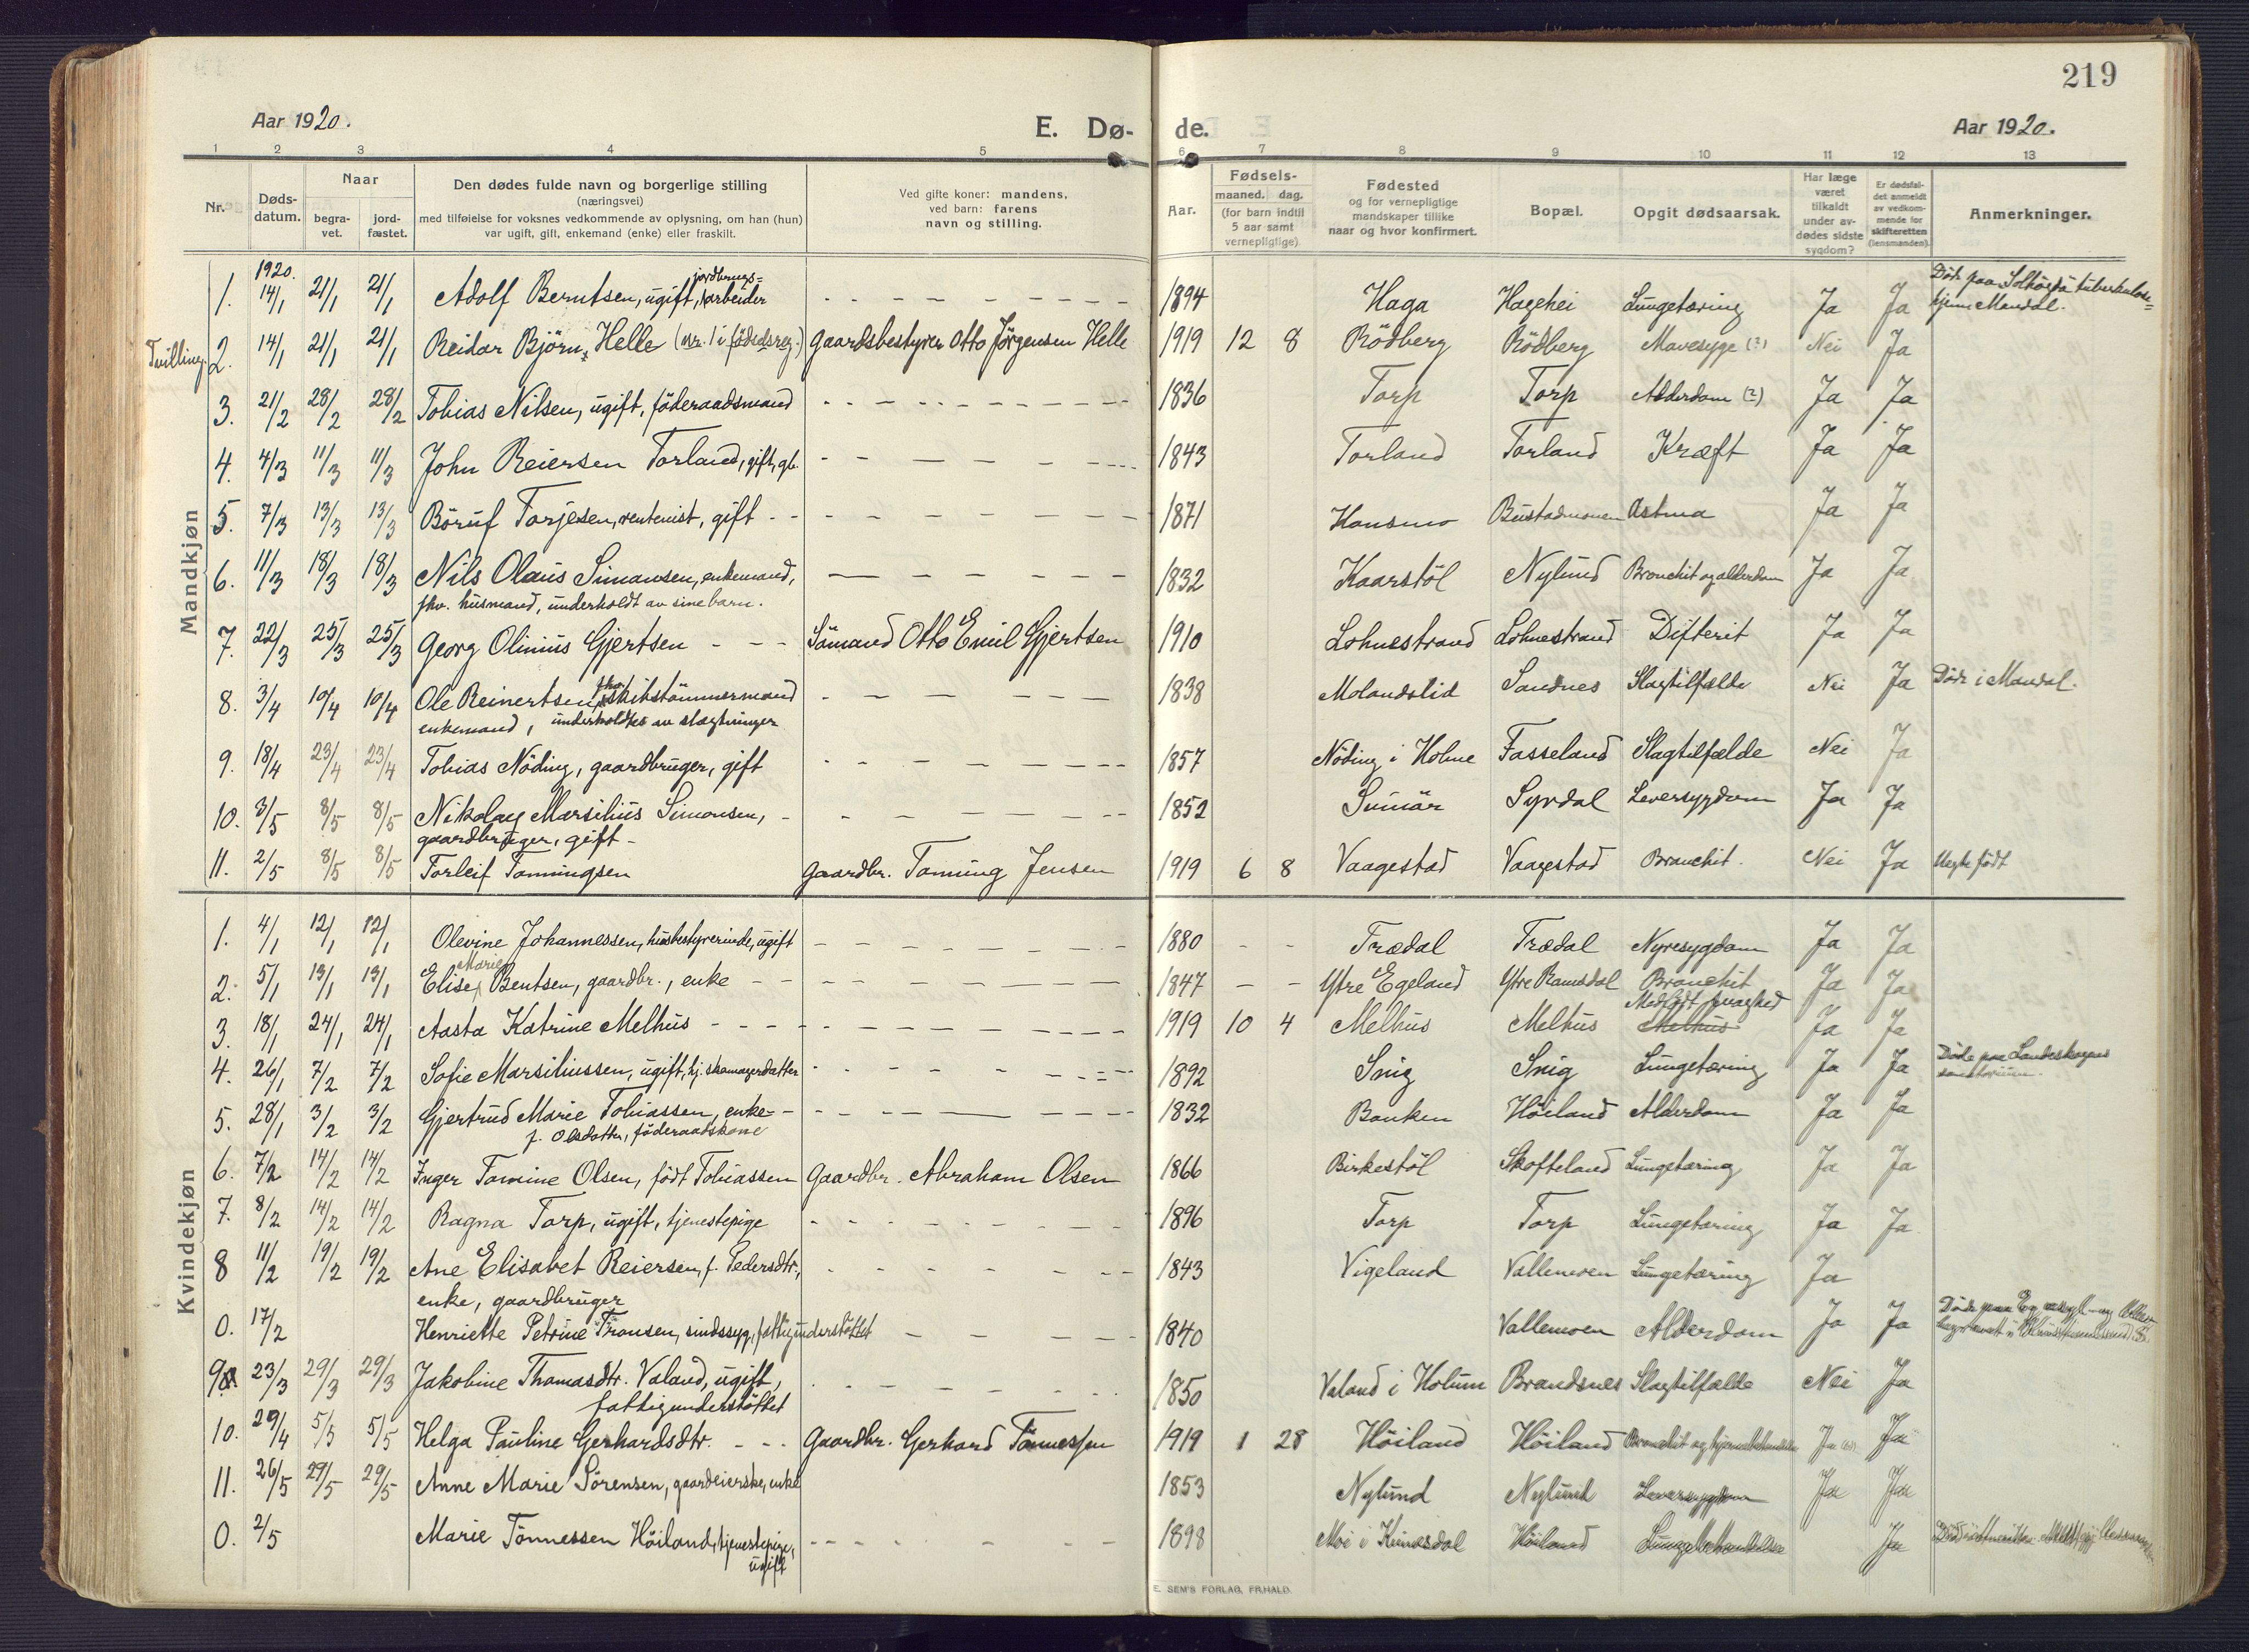 219
Aar 1920.
E. Dø-
de.
Aar 1920.
1 2 3 4 5 6 7 8 9 10 11 12 13
Nr.
Døds-
datum.
Naar
begra-
vet.
jord-
fæstet.
Den dødes fulde navn og borgerlige stilling
(næringsvei)
med tilføielse for voksnes vedkommende av oplysning, om han (hun)
var ugift, gift, enkemand (enke) eller fraskilt.
Ved gifte koner: mandens,
ved barn: farens
navn og stilling.
Aar.
Fødsels-
maaned. dag.
(for barn indtil
5 aar samt
vernepligtige)
Fødested
og for vernepligtige
mandskaper tillike
naar og hvor konfirmert.
Bopæl.
Opgit dødsaarsak.
Har læge
været
tilkaldt
under av-
dødes sidste
sygdom?
Er dødsfal-
det anmeldt
av vedkom-
mende for
skifteretten
(lensmanden).
Anmerkninger.
Mandkjøn
1920.
1. 14/1 21/1 21/1 Adolf Berntsen, ugift, jordbrugs=arbeider 1894 Haga Hagehei Lungetæring Ja Ja Døde paa Solhøgda tuberkulose=
hjem Mandal.
Tvilling. 2. 14/1 21/1 21/1 Reidar Björn Helle (nr. 1 i fødselsreg.) Gaardsbestyrer Otto Jørgensen Helle 1919 12 8 Rödberg Rödberg Mavesyge (?) Nei Ja
3. 21/2 28/2 28/2 Tobias Nilsen, ugift, föderaadsmand 1836 Torp Torp Alderdom (?) Ja Ja
4. 4/3 11/3 11/3 John Reiersen Torland, gift, gb. 1843 Torland Torland Kræft Ja Ja
5. 7/3 13/3 13/3 Böruf Torjesen, rentenist, gift 1871 Hansmo Bustadmonen Astma Ja Ja
6. 11/3 18/3 18/3 Nils Olaus Simonsen, enkemand, 1832 Kaarstöl Nylund Bronchit og alderdom Ja Ja
fhv. husmand, underholdt av sine barn.
7. 22/3 25/3 25/3 Georg Olinius Gjertsen Sömand Otto Emil Gjertsen 1910 Lohnestrand Lohnestrand Difterit Ja Ja
8. 3/4 10/4 10/4 Ole Reinertsen, fhv. skibstömmermand 1838 Molandslid Sandnes Slagtilfælde Nei Ja Døde i Mandal.
enkemand, underholdtes av slægtninger
9. 18/4 23/4 23/4 Tobias Nöding, gaardbruger, gift 1857 Nöding i Holme Fasseland Slagtilfælde Nei Ja
10. 3/5 8/5 8/5 Nikolay Marsilius Simonsen, 1852 Syrdal Leversygdom Ja Ja
gaardbruger, gift
11. 2/5 8/5 8/5 Torleif Tonningsen Gaardbr. Tonning Jensen 1919 6 8 Vaagestad Vaagestad Bronchit. Nei Ja Uegte födt
Kvindekjøn
1. 4/1 12/1 12/1 Olevine Johannessen, husbestyrerinde, ugift 1880 Trædal Trædal Nyresygdom Ja Ja
2. 5/1 13/1 13/1 Elise Marie Bentsen, gaardbr., enke 1847 Ytre Egeland Ytre Ramsdal Bronchit Ja Ja
3. 18/1 24/1 24/1 Aasta Katrine Melhus 1919 10 4 Melhus Melhus Medfødt svaghed Melhus Ja Ja
4. 26/1 7/2 7/2 Sofie Marsiliussen, ugift, hj. skomagerdatter 1892 Snig Snig Lungetæring Ja Ja Døde paa Landeskogens
sanatorium.
5. 28/1 3/2 3/2 Gjertrud Marie Tobiassen, enke 1832 Banken Höiland Alderdom Ja Ja
f. Olsdatter, föderaadskone
6. 7/2 14/2 14/2 Inger Tomine Olsen, födt Tobiassen Gaardbr. Abraham Olsen 1866 Birkestöl Skofteland Lungetæring Ja Ja
7. 8/2 14/2 14/2 Ragna Torp, ugift, tjenestepige 1896 Torp Torp Lungetæring Ja Ja
8 11/2 19/2 19/2 Ane Elisabet Reiersen, f. Pedersdtr., 1843 Vigeland Vallemoen Lungetæring Ja
enke, gaardbruger
0. 17/2 Henriette Petrine Fransen, sindssyg, fattigunderstöttet 1840 Vallemoen Alderdom Ja Ja Døde paa Eg asyl
9. 23/3 29/3 29/3 Jakobine Thomasdtr. Valand, ugift, 1850 Valand i Holum Brandsnes Slagtilfælde Nei Ja
fattigunderstöttet
10. 29/4 5/5 5/5 Helga Pauline Gerhardsdtr. Gaardbr. Gerhard Tönnessen 1919 1 28 Höiland Höiland Bronchit og Ja Ja
11. 26/5 29/5 29/5 Anne Marie Sörensen, gaardeierske, enke 1853 Nylund Nylund Leversygdom Ja Ja
0. 2/5 Marie Tönnessen Höiland, tjenestepige, 1898 Moi i Kvinesdal Höiland Ja
ugift
E. SEM'S FORLAG, FR.HALD.